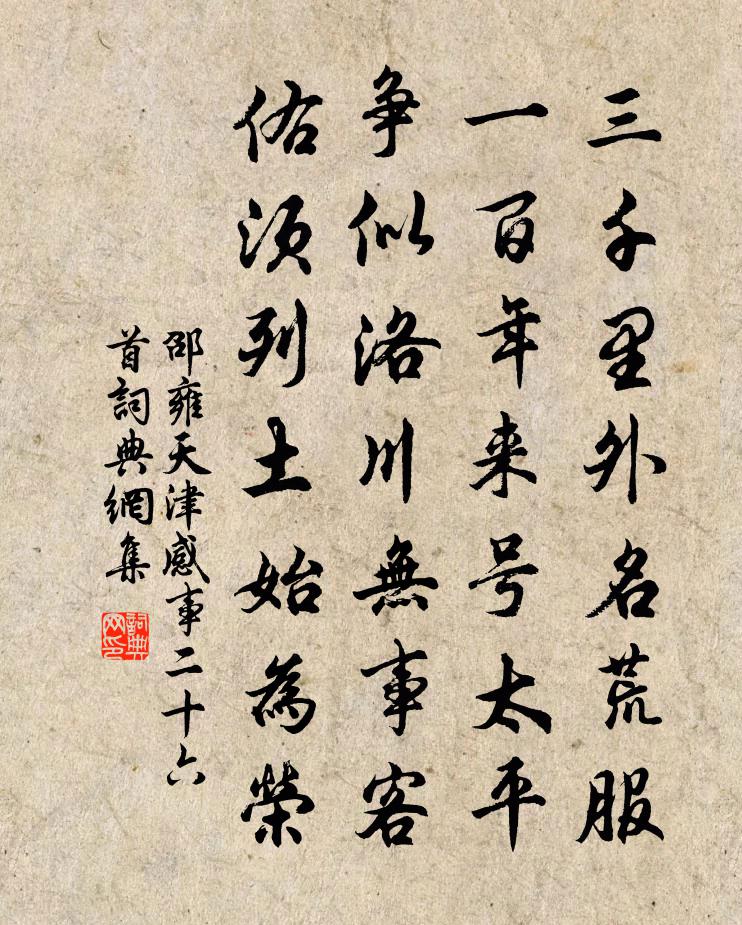 三千里外名荒服
一百年来号太平
争似洛川無事客
须列土始為榮
邵雍天津感事二十六
首詞典網集
詞典
网印